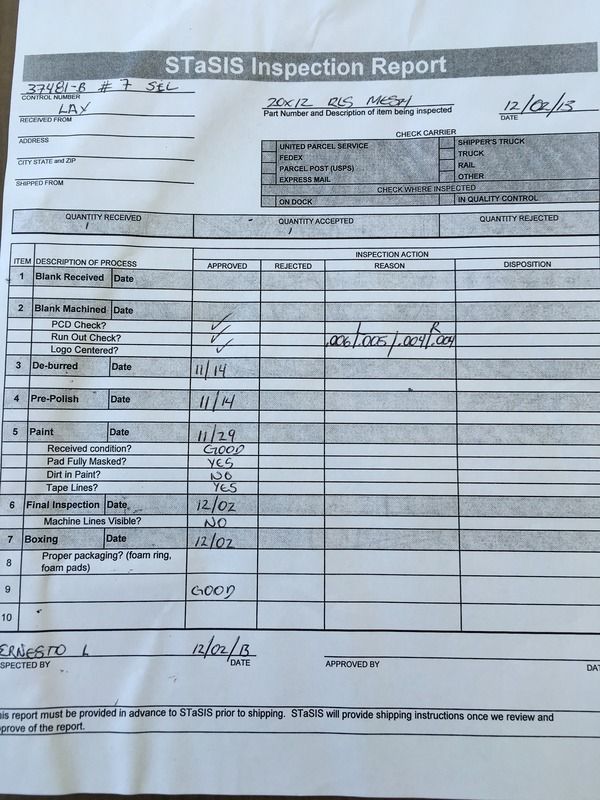 STaSIS Inspection Report
37481-B # 7 SEL
CONTROL NUMBER
LAX
RECEIVED FROM
ADDRESS
CITY STATE and ZIP
SHIPPED FROM
20X12 RLS MESH
Part Number and Description of item being inspected
12/02/13
DATE
CHECK CARRIER
UNITED PARCEL SERVICE
FEDEX
PARCEL POST (USPS)
EXPRESS MAIL
SHIPPER'S TRUCK
TRUCK
RAIL
OTHER
CHECK WHERE INSPECTED
ON DOCK
IN QUALITY CONTROL
QUANTITY RECEIVED QUANTITY ACCEPTED QUANTITY REJECTED
1 1
INSPECTION ACTION
ITEM DESCRIPTION OF PROCESS APPROVED REJECTED REASON DISPOSITION
1 Blank Received Date
2 Blank Machined Date
PCD Check? ✓ L R
Run Out Check? ✓ .006/.005/.004/.004
Logo Centered? ✓
3 De-burred Date 11/14
4 Pre-Polish Date 11/14
5 Paint Date 11/29
Received condition? GOOD
Pad Fully Masked? YES
Dirt in Paint? NO
Tape Lines? YES
6 Final Inspection Date 12/02
Machine Lines Visible? NO
7 Boxing Date 12/02
8 Proper packaging? (foam ring,
foam pads)
9 GOOD
10
ERNESTO L 12/02/13
SPECTED BY DATE APPROVED BY DAT
is report must be provided in advance to STaSIS prior to shipping. STaSIS will provide shipping instructions once we review and
prove of the report.